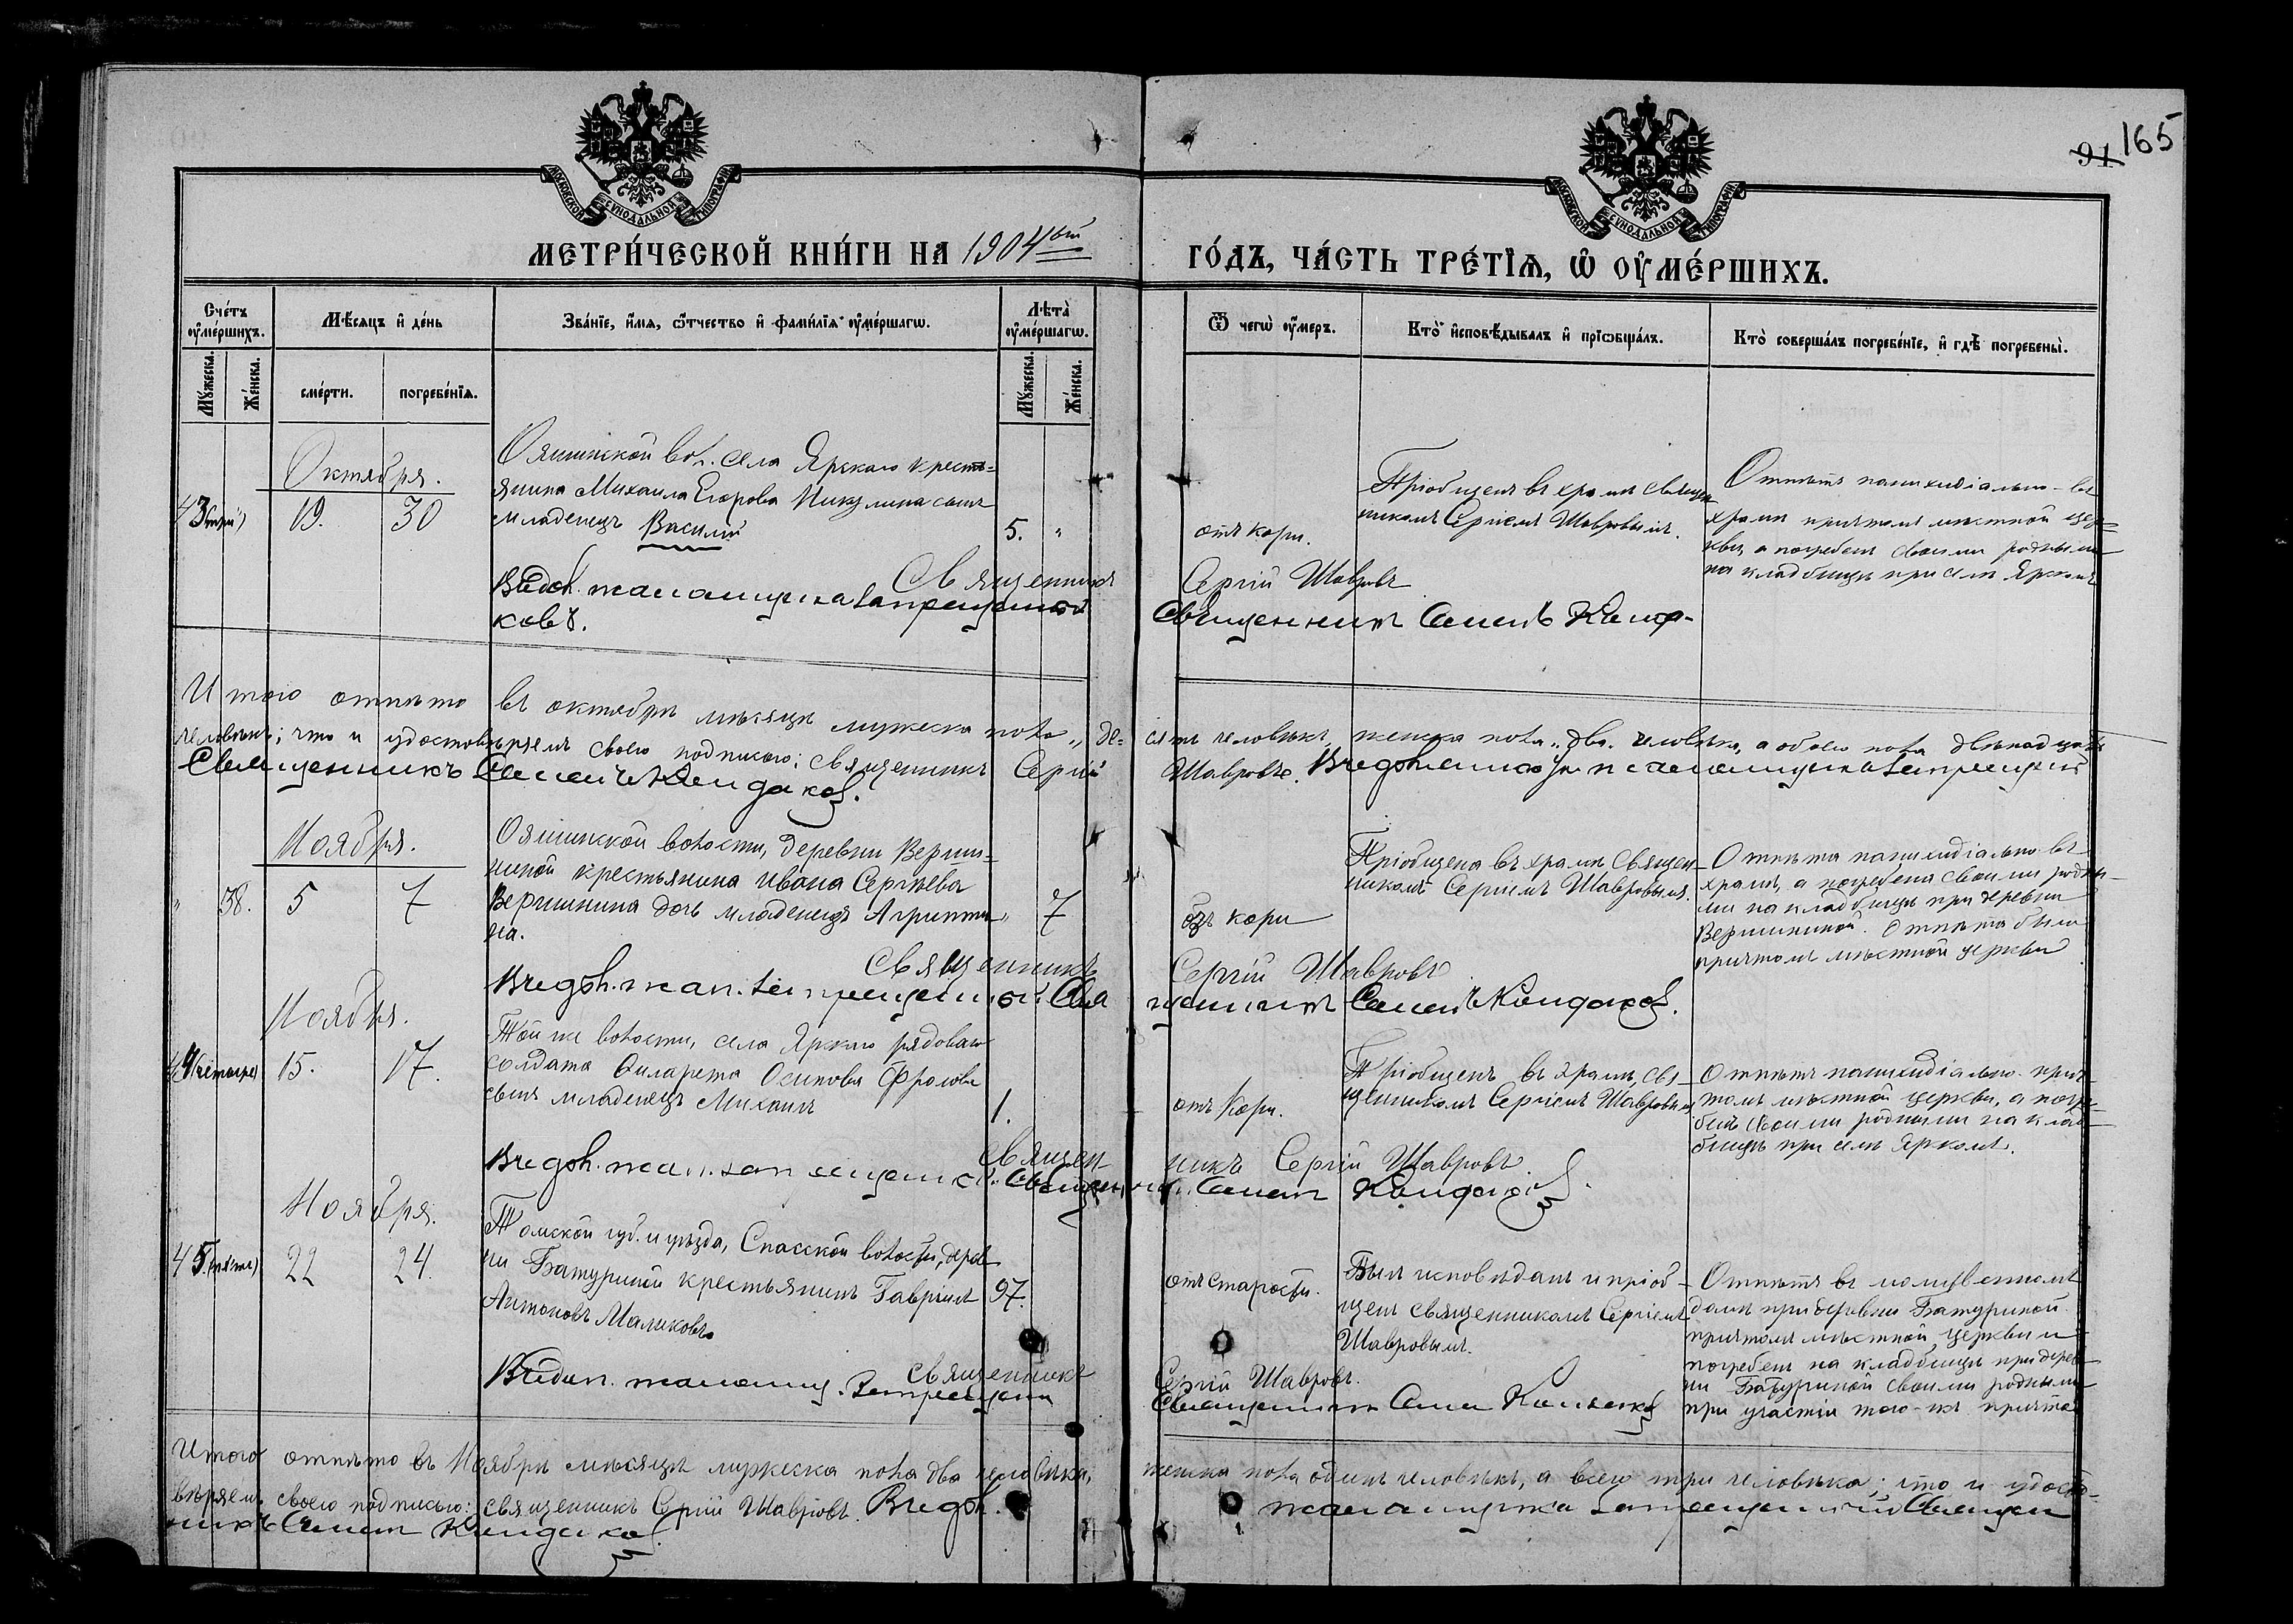 91 165
МОСКОВСКОЙ СѴНОДАЛЬНОЙ ТИПОГРАФІИ
МОСКОВСКОЙ СѴНОДАЛЬНОЙ ТИПОГРАФІИ
МЕТРИ́ЧЕСКОЙ КНИ́ГИ НА 1904ый
ГО́ДЪ, ЧА́СТЬ ТРЕ́ТЇѦ, Ѿ ОУ҆МЕ́РШИХЪ.
Сче́тъ оу҆ме́ршихъ.
Мѣ́сяцъ и҆ де́нь
Зва́нїе, и҆́мѧ, ѻ҆́тчество и҆ фами́лїѧ оу҆ме́ршагѡ.
Лѣта̀ оу҆ме́ршагѡ.
Ѿ чегѡ̀ оу҆́меръ.
Кто̀ и҆сповѣ́дывалъ и҆ прїѡбща́лъ.
Кто̀ соверша́лъ погребе́нїе, и҆ гдѣ̀ погребены̀.
Мꙋ́жеска.
Же́нска.
сме́рти.
погребе́нїѧ.
Мꙋ́жеска.
Же́нска.
Октября.
43(три)
19.
30
Ояшинской вол. села Ярскаго кресть=
янина Михаила Егорова Никулина сынъ
младенецъ Василій
5. "
отъ кори.
Пріобщенъ въ храмѣ священ
никомъ Сергіемъ Шавровымъ.
Отпѣтъ панихидіально въ
храмѣ причтомъ мѣстной цер=
кви, а погребенъ своими родными
на кладбищѣ при селѣ Ярскомъ
Священникъ Сергій Шавровъ
Священникъ Семенъ Кондаковъ.
Итого отпѣто въ октябрѣ мѣсяцѣ мужеска пола " де=сять человѣкъ, женска пола " два человѣка, а обоего пола двѣнадцать
человѣкъ; что и удостовѣряемъ своею подписью: Священникъ Сергій Шавровъ.
Священникъ Семенъ Кондаковъ.
Ноября.
" 38. 5 7
Ояшинской волости, деревни Верши=
ниной крестьянина Ивана Сергѣева
Вершинина дочь младенецъ Агриппи
на.
" 7
отъ кори
Пріобщена въ храмѣ священ
никомъ Сергіемъ Шавровымъ.
Отпѣта панихидіально въ
храмѣ, а погребена своими родны=
ми на кладбищѣ при деревни
Вершининой. Отпѣта была
причтомъ мѣстной церкви
Священникъ Сергій Шавровъ
Священникъ Семенъ Кондаковъ.
Ноября.
44(четыре) 15. 17.
Той же волости, села Ярскаго рядоваго
солдата Филарета Осипова Фролова
сынъ младенецъ Михаилъ
1.
отъ кори.
Пріобщенъ въ храмѣ, свя=
щенникомъ Сергіемъ Шавровымъ
Отпѣтъ панихидіально прич=
томъ мѣстной церкви, а погре=
бенъ своими родными на клад=
бищѣ при селѣ Ярскомъ.
Священникъ Сергій Шавровъ.
Священникъ Семенъ Кондаковъ.
Ноября.
45(пять) 22 24.
Томской губ. и уѣзда, Спасской волости, дерев
ни Батуриной крестьянинъ Гавріилъ
Антоновъ Маликовъ
97.
отъ старости.
Былъ исповѣданъ и пріоб=
щенъ священникомъ Сергіемъ
Шавровымъ.
Отпѣтъ въ молитвенномъ
домѣ при деревни Батуриной
причтомъ мѣстной церкви и
погребенъ на кладбищѣ при дерев
ни Батуриной своими родными
при участіи того-же причта
Священникъ Сергій Шавровъ.
Священникъ Семенъ Кондаковъ
Итого отпѣто въ Ноябрѣ мѣсяцѣ мужеска пола два человѣка, женска пола одинъ человѣкъ, а всего три человѣка; что и удосто=
вѣряемъ своею подписью: священникъ Сергій Шавровъ.
Священникъ Семенъ Кондаковъ.